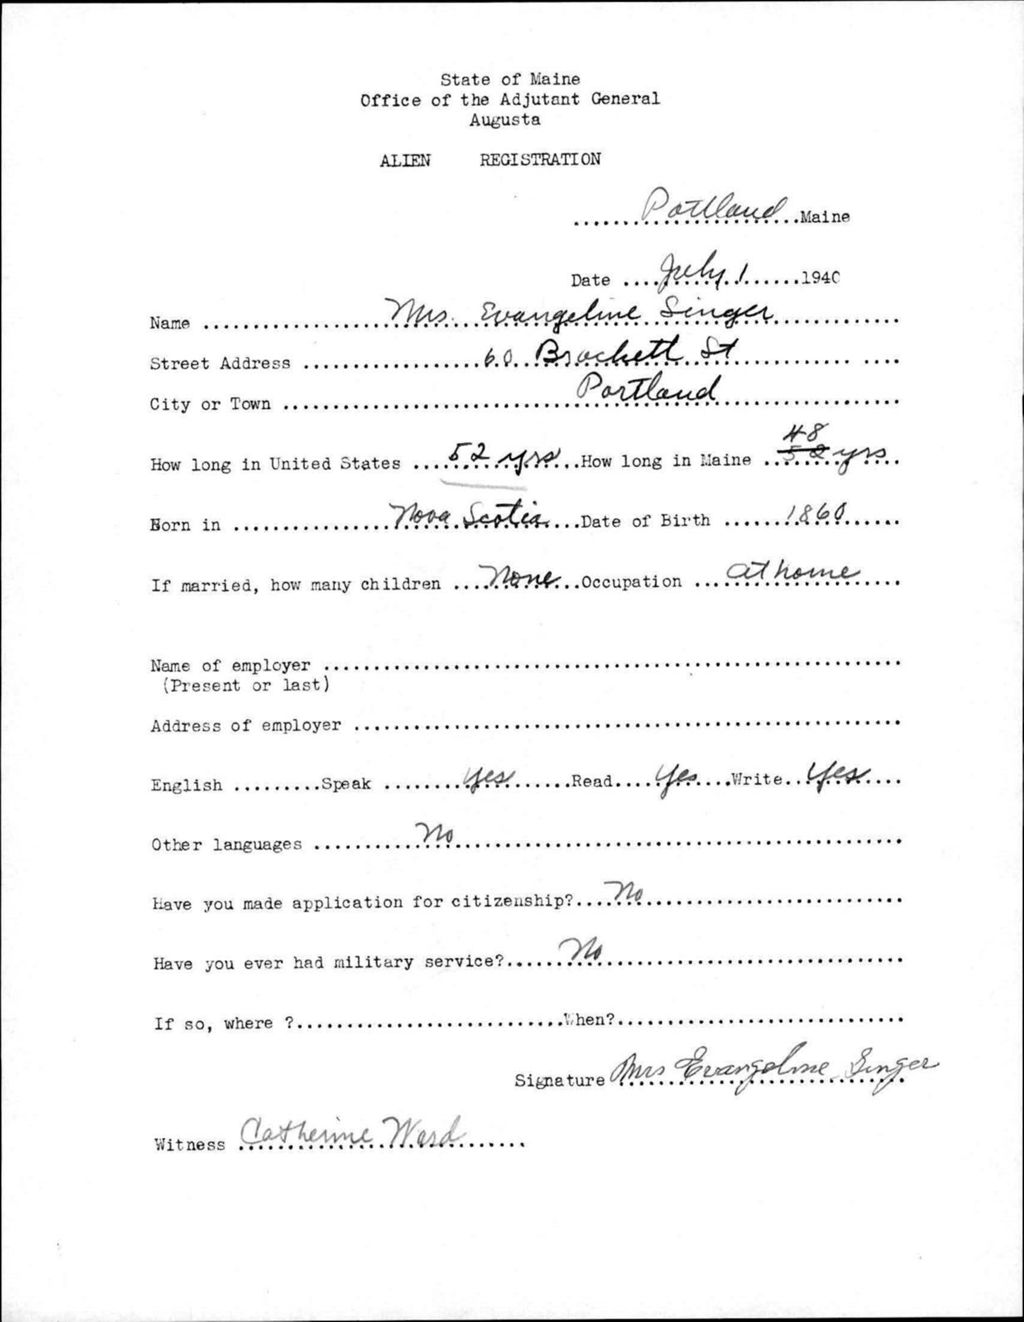 State of Maine
Office of the Adjutant General
Augusta
ALIEN REGISTRATION
.......Portland..Maine
Date ....July 1......1940
Name ...................Mrs. Evangeline Singer.............
Street Address ..................60 Brackett St.............. ....
City or Town ..............................Portland...................
How long in United States ....52 yrs...How long in Maine ..48 52 yrs..
Born in ................Nova Scotia...Date of Birth ......1860......
If married, how many children ....None..Occupation ...at home.....
Name of employer ..........................................................
(Present or last)
Address of employer .......................................................
English .........Speak ........Yes......Read....Yes....Write..Yes....
Other languages ...........No.............................................
Have you made application for citizenship?....No..........................
Have you ever had military service?......No..............................
If so, where ?...........................When?.............................
Signature Mrs Evangeline Singer
Witness Catherine Ward......